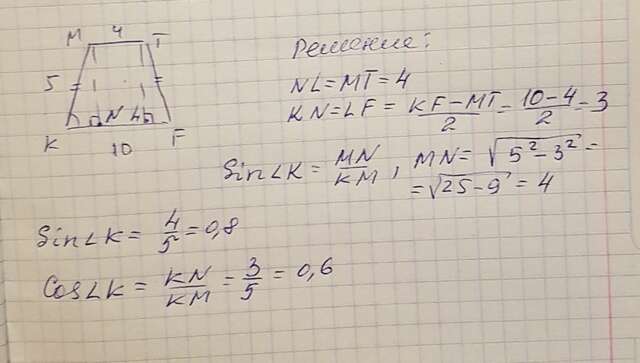 M 4 T
5
K N L F
10
Решение:
NL=MT=4
KN=LF= (KF-MT)/2 = (10-4)/2 = 3
Sin∠K= MN/KM, MN= √(5²-3²) =
=√(25-9) = 4
Sin∠K= 4/5 =0,8
Cos∠K= KN/KM = 3/5 = 0,6